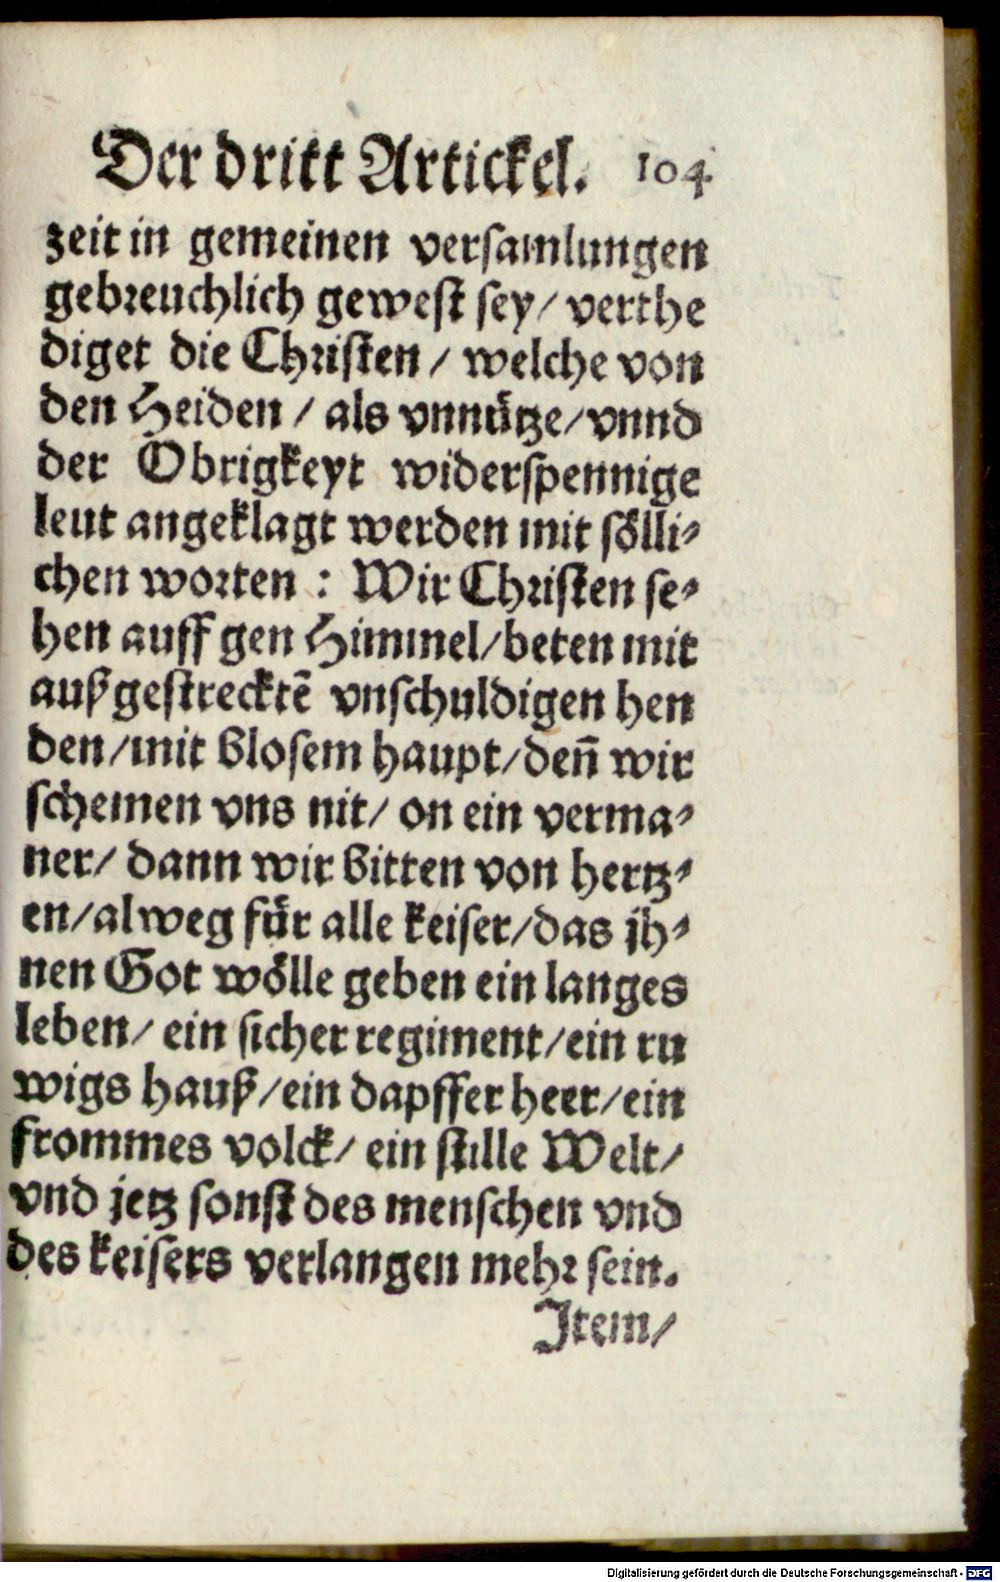 Der dritt Artickel. 104
zeit in gemeinen versamlungen
gebreuchlich gewest sey/ verthe
diget die Christen/ welche von
den Heiden/ als vnnütze/ vnnd
der Obrigkeyt widerspennige
leut angeklagt werden mit sölli-
chen worten: Wir Christen se-
hen auff gen Himmel/ beten mit
außgestrecktē vnschuldigen hen
den/ mit blosem haupt/ deñ wir
schemen vns nit/ on ein verma-
ner/ dann wir bitten von hertz-
en/ alweg für alle keiser/ das jh-
nen Got wölle geben ein langes
leben/ ein sicher regiment/ ein ru
wigs hauß/ ein dapffer heer/ ein
frommes volck/ ein stille Welt/
vnd jetz sonst des menschen vnd
des keisers verlangen mehr sein.
Item/
Digitalisierung gefördert durch die Deutsche Forschungsgemeinschaft - DFG